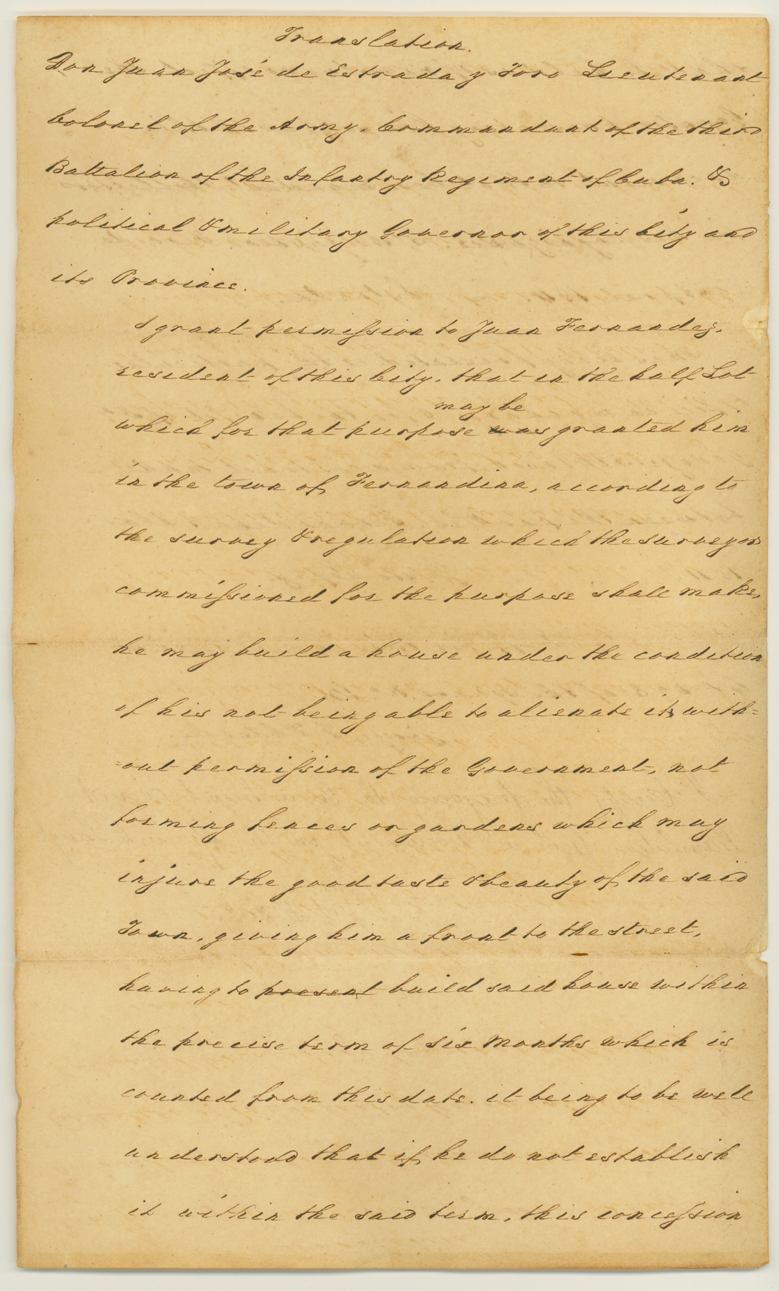 Translation.
Don Juan José de Estrada y Toro Lieutenant
Colonel of the Army, Commandant of the third
Battalion of the Infantry Regiment of Cuba. &
political & military Governor of this City and
its Province.
I grant permission to Juan Fernandez,
resident of this City, that in the half Lot
may be
which for that purpose was granted him
in the town of Fernandina, according to
the survey & regulation which the surveyor
commissioned for the purpose shall make,
he may build a house under the condition
of his not being able to alienate it, with=
=out permission of the Government, not
forming fences or gardens which may
injure the good taste & beauty of the said
Town, giving him a front to the street,
having to present build said house within
the precise term of six Months which is
counted from this date. it being to be well
understood that if he do not establish
it within the said term, this concession